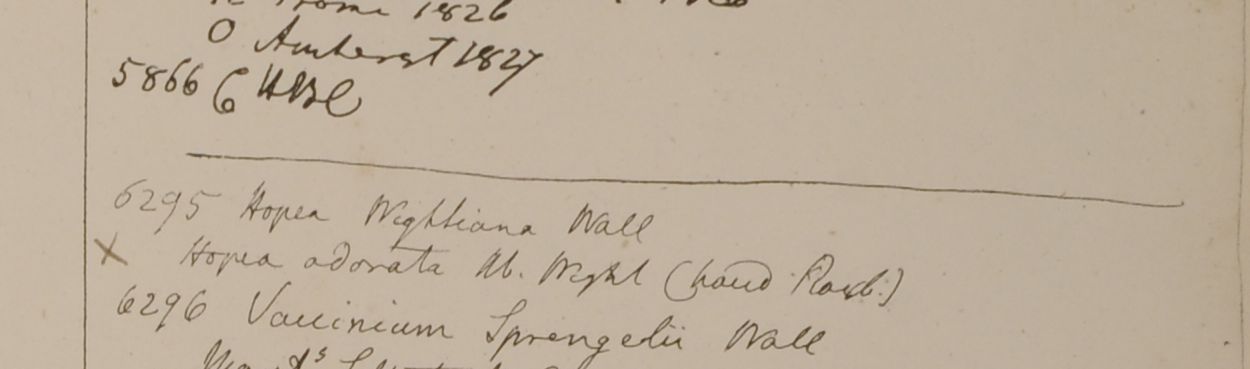 Prome 1826
O Amherst 1827
5866 6 HBC
6295 Hopea Wightiana Wall
X Hopea odorata Hb. Wight (haud Roxb.)
6296 Vaccinium Sprengelii Wall